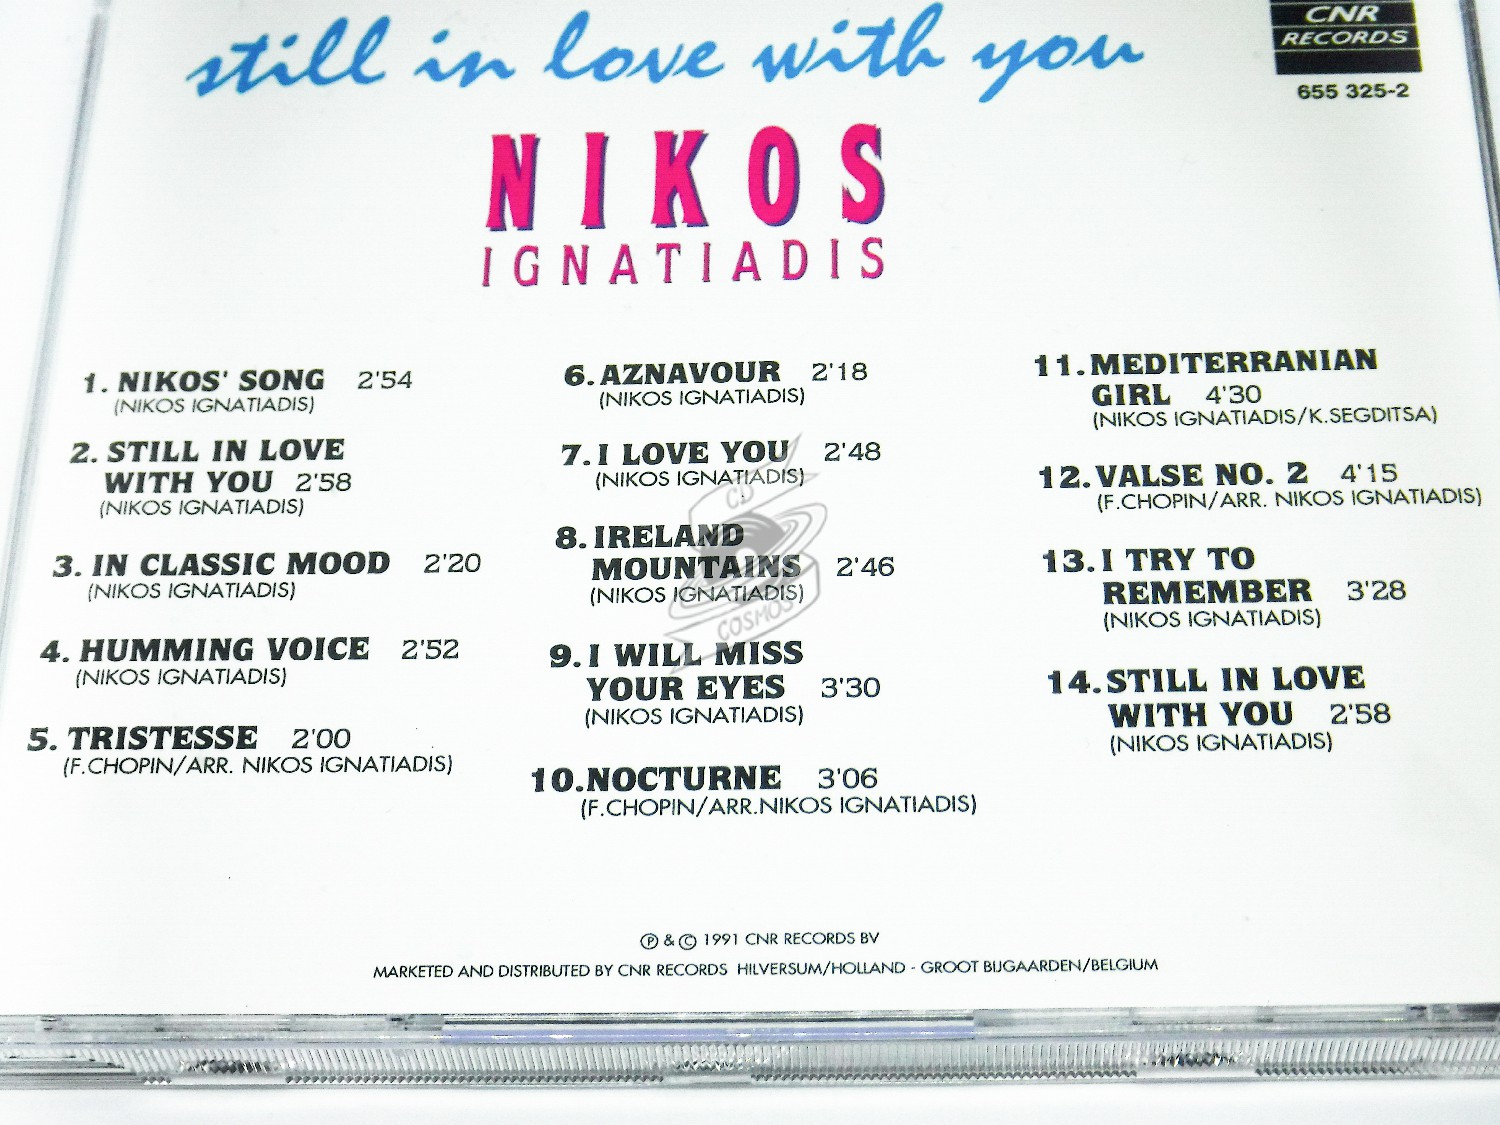 still in love with you
CNR
RECORDS
655 325-2
NIKOS
IGNATIADIS
1. NIKOS' SONG 2'54
(NIKOS IGNATIADIS)
2. STILL IN LOVE
WITH YOU 2'58
(NIKOS IGNATIADIS)
3. IN CLASSIC MOOD 2'20
(NIKOS IGNATIADIS)
4. HUMMING VOICE 2'52
(NIKOS IGNATIADIS)
5. TRISTESSE 2'00
(F.CHOPIN/ARR. NIKOS IGNATIADIS)
6. AZNAVOUR 2'18
(NIKOS IGNATIADIS)
7. I LOVE YOU 2'48
(NIKOS IGNATIADIS)
8. IRELAND
MOUNTAINS 2'46
(NIKOS IGNATIADIS)
9. I WILL MISS
YOUR EYES 3'30
(NIKOS IGNATIADIS)
10. NOCTURNE 3'06
(F.CHOPIN/ARR.NIKOS IGNATIADIS)
11. MEDITERRANIAN
GIRL 4'30
(NIKOS IGNATIADIS/K.SEGDITSA)
12. VALSE NO. 2 4'15
(F.CHOPIN/ARR. NIKOS IGNATIADIS)
13. I TRY TO
REMEMBER 3'28
(NIKOS IGNATIADIS)
14. STILL IN LOVE
WITH YOU 2'58
(NIKOS IGNATIADIS)
CD
COSMOS
℗ & © 1991 CNR RECORDS BV
MARKETED AND DISTRIBUTED BY CNR RECORDS HILVERSUM/HOLLAND - GROOT BIJGAARDEN/BELGIUM